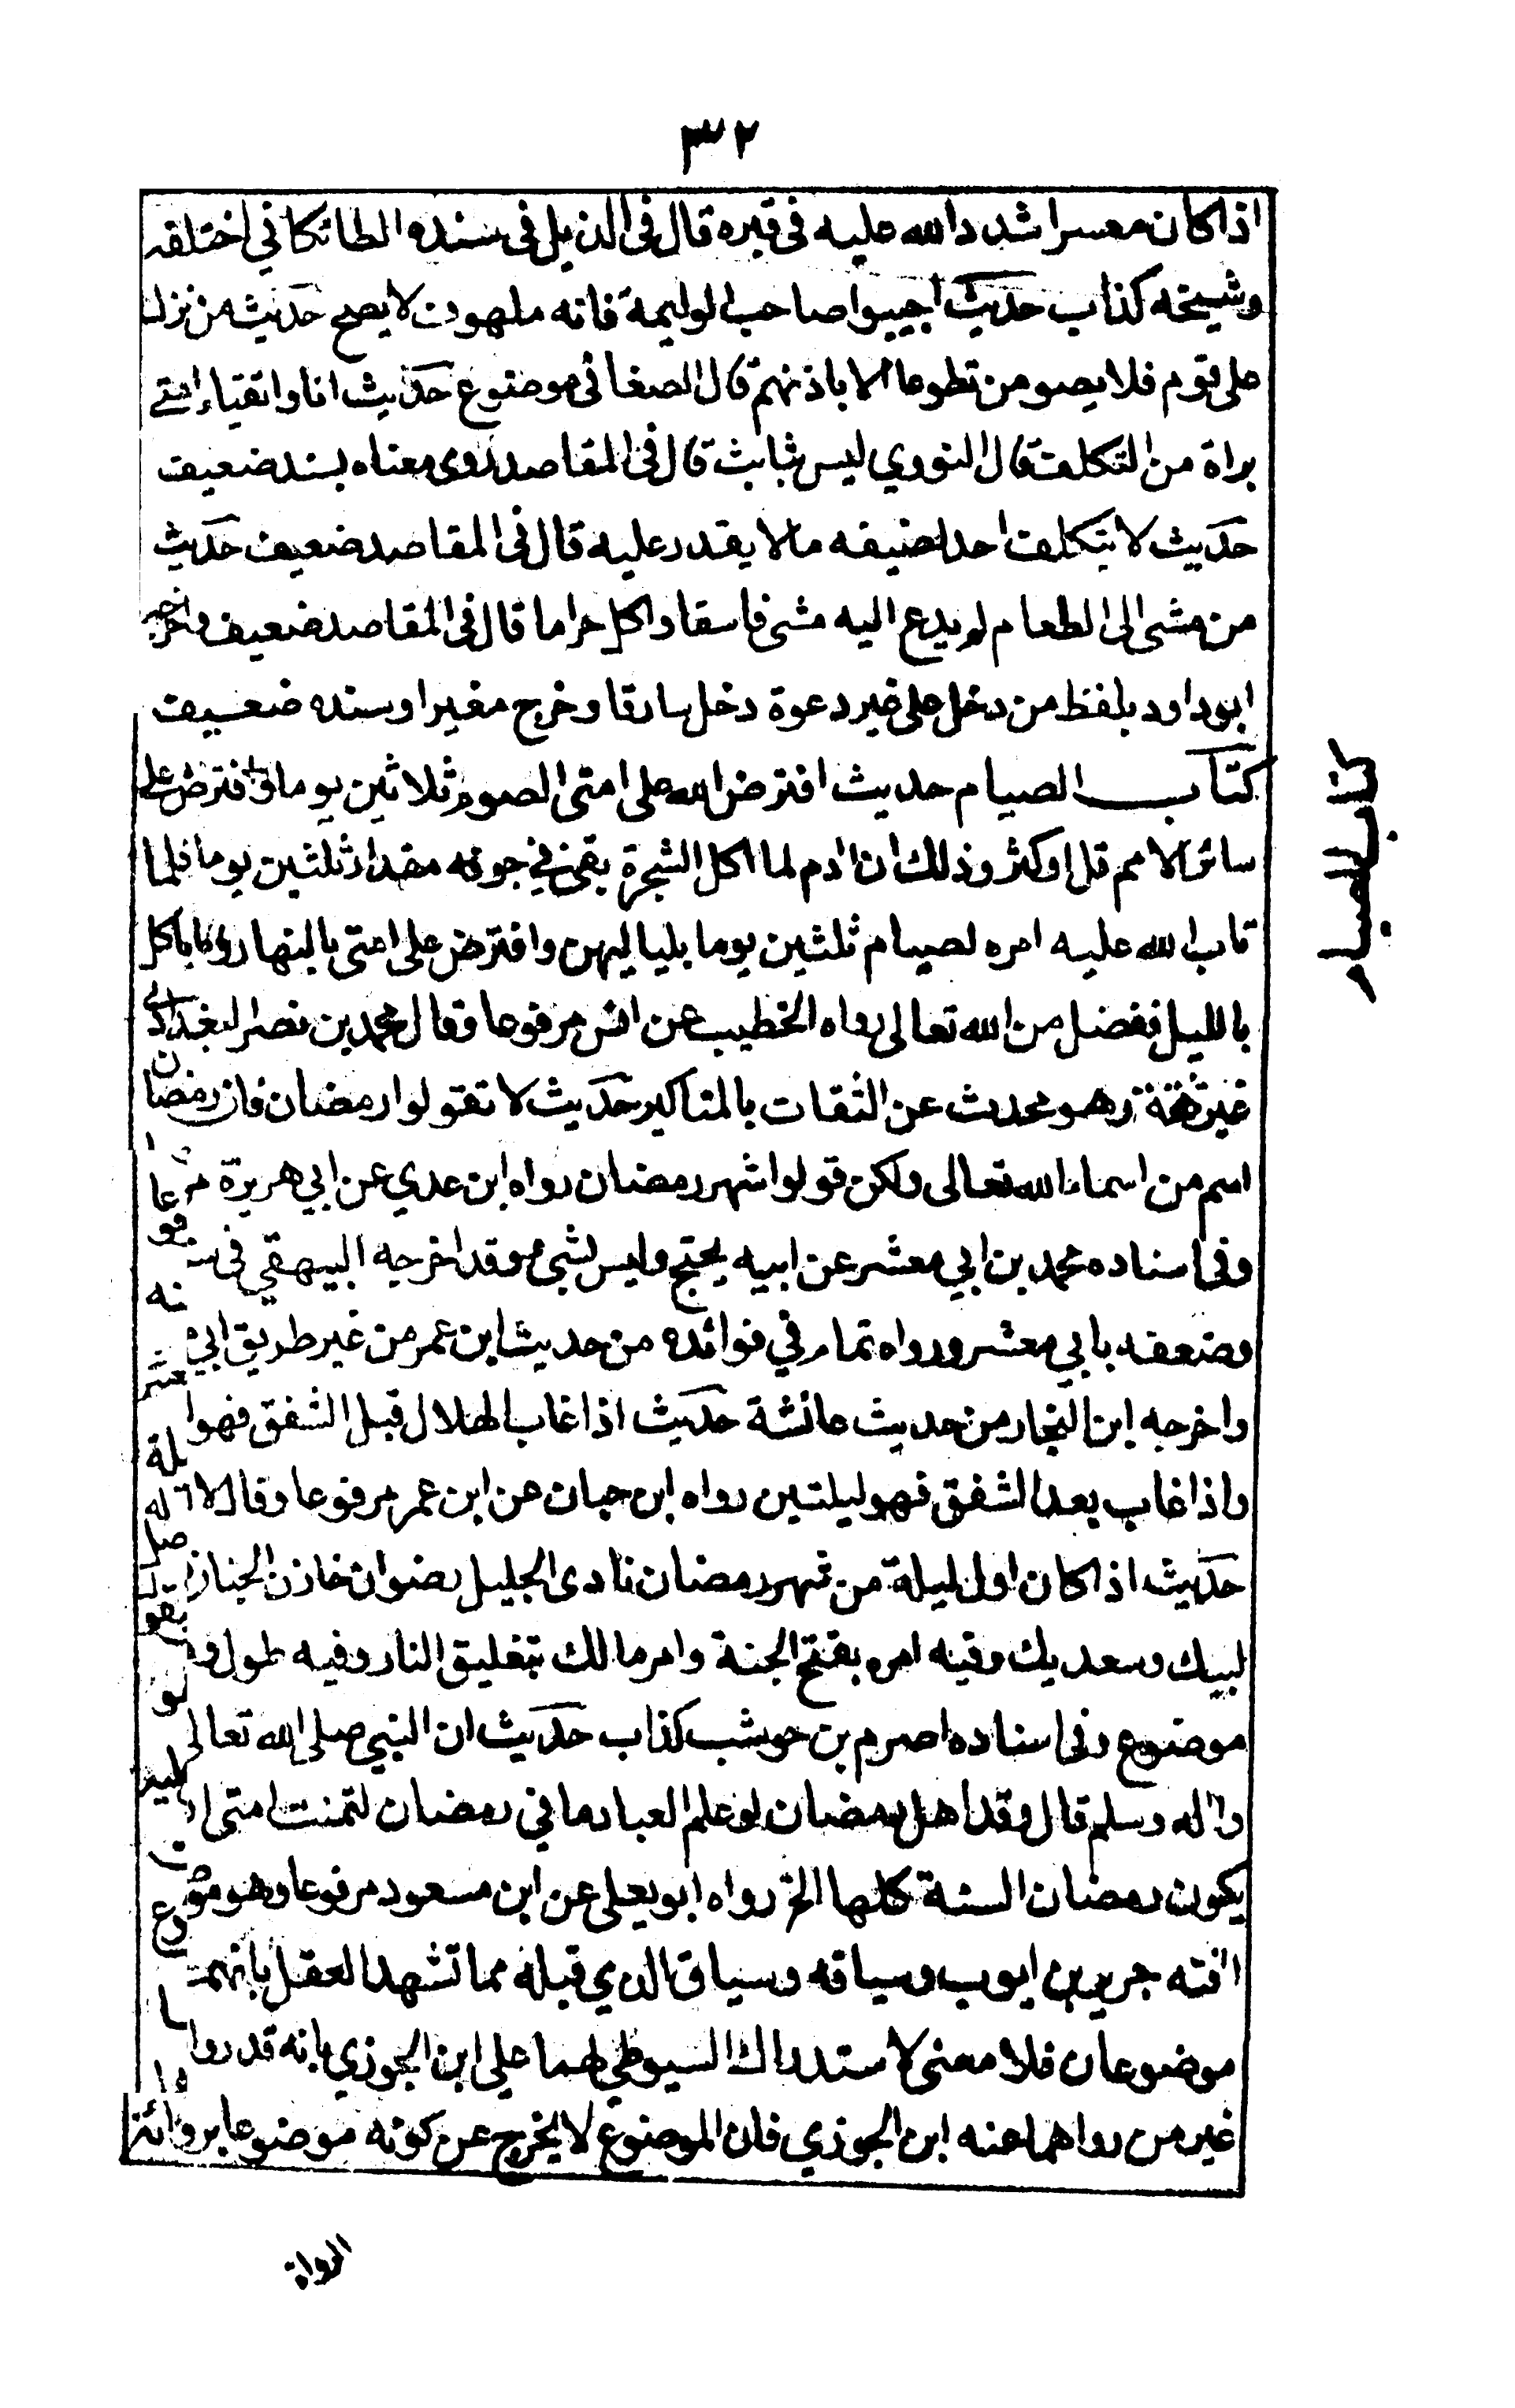 ٣٢
اذا كان معسرا شدد الله عليه في قبره قال في الذيل في سنده الطائكاني اختلقه
وشيخه كذاب حديث اجيبوا صاحب الوليمة فانه ملهوف لا يصح حديث من نزل
على قوم فلا يصومن تطوعا الا باذنهم قال الصغاني موضوع حديث انا واتقياء امتي
براة من التكلف قال النووي ليس بثابت قال في المقاصد روى معناه بسند ضعيف
حديث لا يتكلفن احد لضيفه ما لا يقدر عليه قال في المقاصد ضعيف حديث
من مشى الى الطعام لم يدع اليه مشى فاسقا واكل حراما قال في المقاصد ضعيف واخرجه
ابو داود بلفظ من دخل على غير دعوة دخل سارقا وخرج مغيرا وسنده ضعيف
كتاب الصيام حديث افترض الله على امتى الصوم ثلاثين يوما وافترض على
سائر الامم قل او كثر وذلك ان ادم لما اكل الشجرة بقى في جوفه مقدار ثلثين يوما فلما
تاب الله عليه امره لصيام ثلثين يوما بلياليهن وافترض على امتى بالنهار وما ناكل
بالليل ففضل من الله تعالى رواه الخطيب عن انس مرفوعا وقال محمد بن نصر البغدادي
غير ثقة وهو محدث عن الثقات بالمناكير حديث لا تقولوا رمضان فان رمضان
اسم من اسماء الله تعالى ولكن قولوا شهر رمضان رواه ابن عدي عن ابي هريرة مرفوعا
وفي اسناده محمد بن ابي معشر عن ابيه يحتج وليس بشي وقد اخرجه البيهقي في سننه
وضعفه بابي معشر ورواه تمام في فوائده من حديث ابن عمر من غير طريق ابي معشر
واخرجه ابن النجار من حديث عائشة حديث اذا غاب الهلال قبل الشفق فهو لليلة
واذا غاب بعد الشفق فهو ليلتين رواه ابن حبان عن ابن عمر مرفوعا وقال لا اصل له
حديث اذا كان اول ليلة من شهر رمضان نادى الجليل رضوان خازن الجنان فيقول
لبيك وسعديك وفيه امره بفتح الجنة وامر مالك بتغليق النار وفيه طول وهو
موضوع وفي اسناده اصرم بن حوشب كذاب حديث ان النبي صلى الله تعالى عليه
واله وسلم قال وقد اهل رمضان لو علم العباد ما في رمضان لتمنت امتى ان
يكون رمضان السنة كلها الخ رواه ابو يعلى عن ابن مسعود مرفوعا وهو موضوع
افته جرير بن ايوب وسياقه وسياق الذي قبله مما تشهد العقل بانهما
موضوعان فلا معنى لاستدراك السيوطي لهما على ابن الجوزي بانه قد رواهما
غير من رواهما عنه ابن الجوزي فان الموضوع لا يخرج عن كونه موضوعا برواية
كتاب الصيام
الرواة